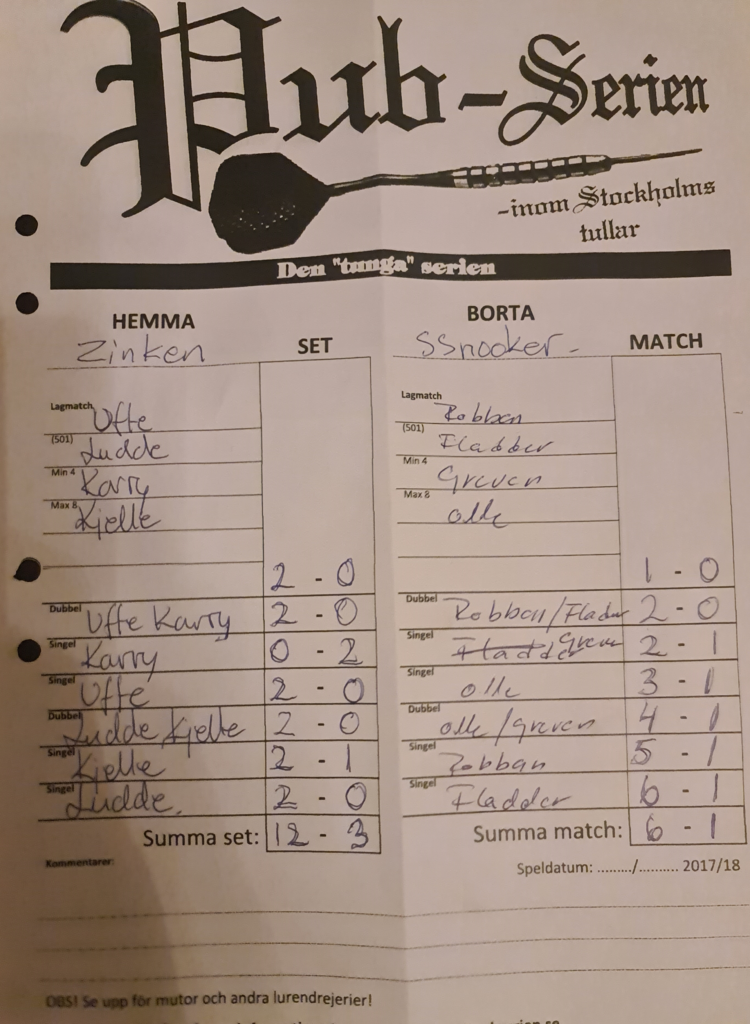 Pub-Serien
-inom Stockholms
tullar
Den "tunga" serien
HEMMA BORTA
Zinken SET SSnooker- MATCH
Lagmatch Uffe Lagmatch Robban
(501) Ludde (501) Fladder
Min 4 Karry Min 4 Greven
Max 8 Kjelle Max 8 Olle
2 - 0 1 - 0
Dubbel Uffe Karry 2 - 0 Dubbel Robban/Flader 2 - 0
Singel Karry 0 - 2 Singel Fladder Greven 2 - 1
Singel Uffe 2 - 0 Singel Olle 3 - 1
Dubbel Ludde Kjelle 2 - 0 Dubbel Olle/Greven 4 - 1
Singel Kjelle 2 - 1 Singel Robban 5 - 1
Singel Ludde. 2 - 0 Singel Fladder 6 - 1
Summa set: 12 - 3 Summa match: 6 - 1
Kommentarer: Speldatum: ........./.......... 2017/18
OBS! Se upp för mutor och andra lurendrejerier!